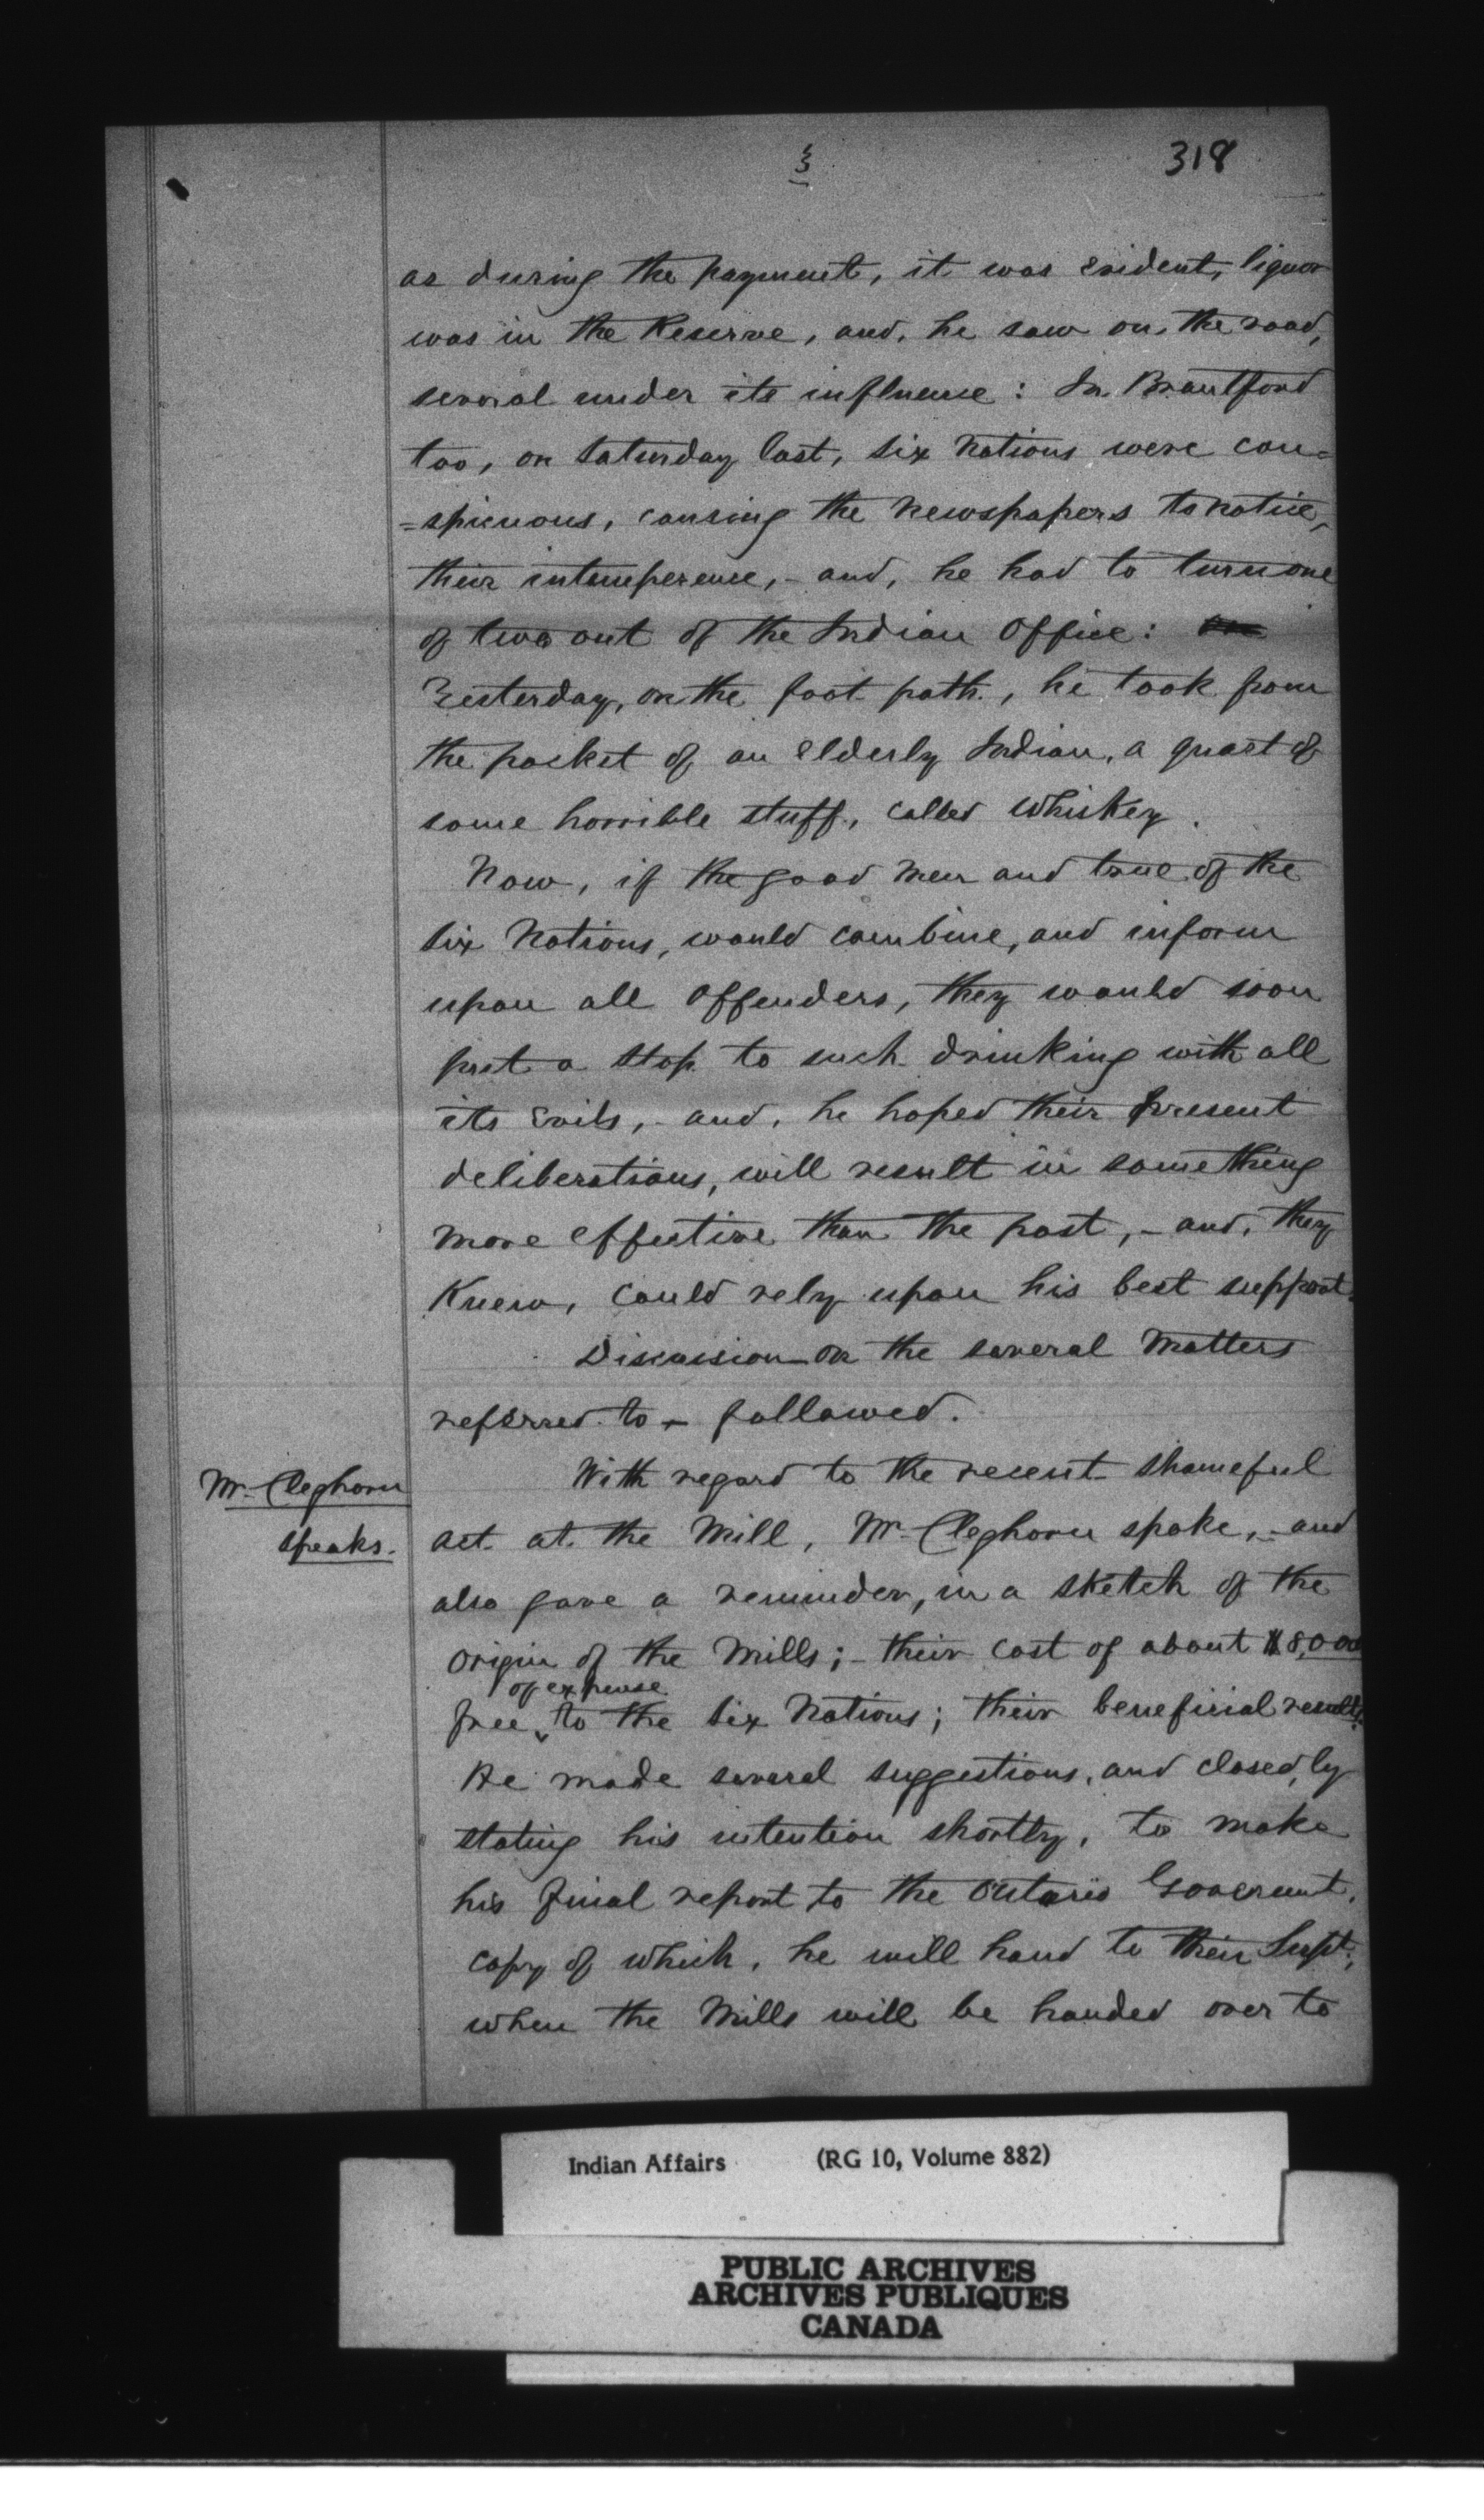 3
318
as during the payment, it was evident, liquor
was in the Reserve, and, he saw on, the road,
several under its influence: In Brantford
too, on Saturday last, Six Nations were con=
=spicuous, causing the Newspapers to notice,
their intemperence, - and, he had to turn one
of two out of the Indian Office:
Yesterday, on the foot path, he took from
the pocket of an Elderly Indian, a quart of
some horrible stuff, called Whiskey.
Now, if the good men and true of the
Six Nations, would combine, and inform
upon all Offenders, they would soon
put a stop to such drinking with all
its Evils, - and, he hoped their present
deliberations, will result in something
more effective than the past, - and, they
Knew, could rely upon his best support.
Discussion on the several Matters
referred to - followed.
Mr. Cleghorn
speaks.
With regard to the recent shameful
act at the Mill, Mr. Cleghorn spoke, - and
also gave a reminder, in a sketch of the
Origin of the Mills; - their cost of about $8,000
of expense
free to the Six Nations; their beneficial results.
He made several suggestions, and closed, by
stating his intention shortly, to make
his final report to the Ontario Goverment,
copy of which, he will hand to their Supt.,
when the Mills will be handed over to
Indian Affairs (RG 10, Volume 882)
PUBLIC ARCHIVES
ARCHIVES PUBLIQUES
CANADA